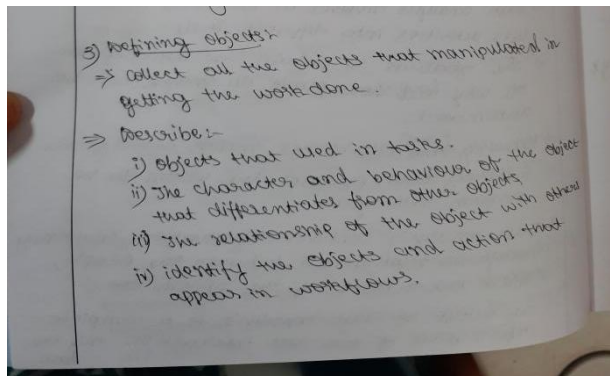 3) Defining objects:-
=> collect all the objects that manipulated in
getting the work done.
=> Describe:-
i) objects that used in tasks.
ii) The character and behaviour of the object
that differentiates from other objects
iii) The relationship of the object with others
iv) identify the objects and action that
appear in workflows.